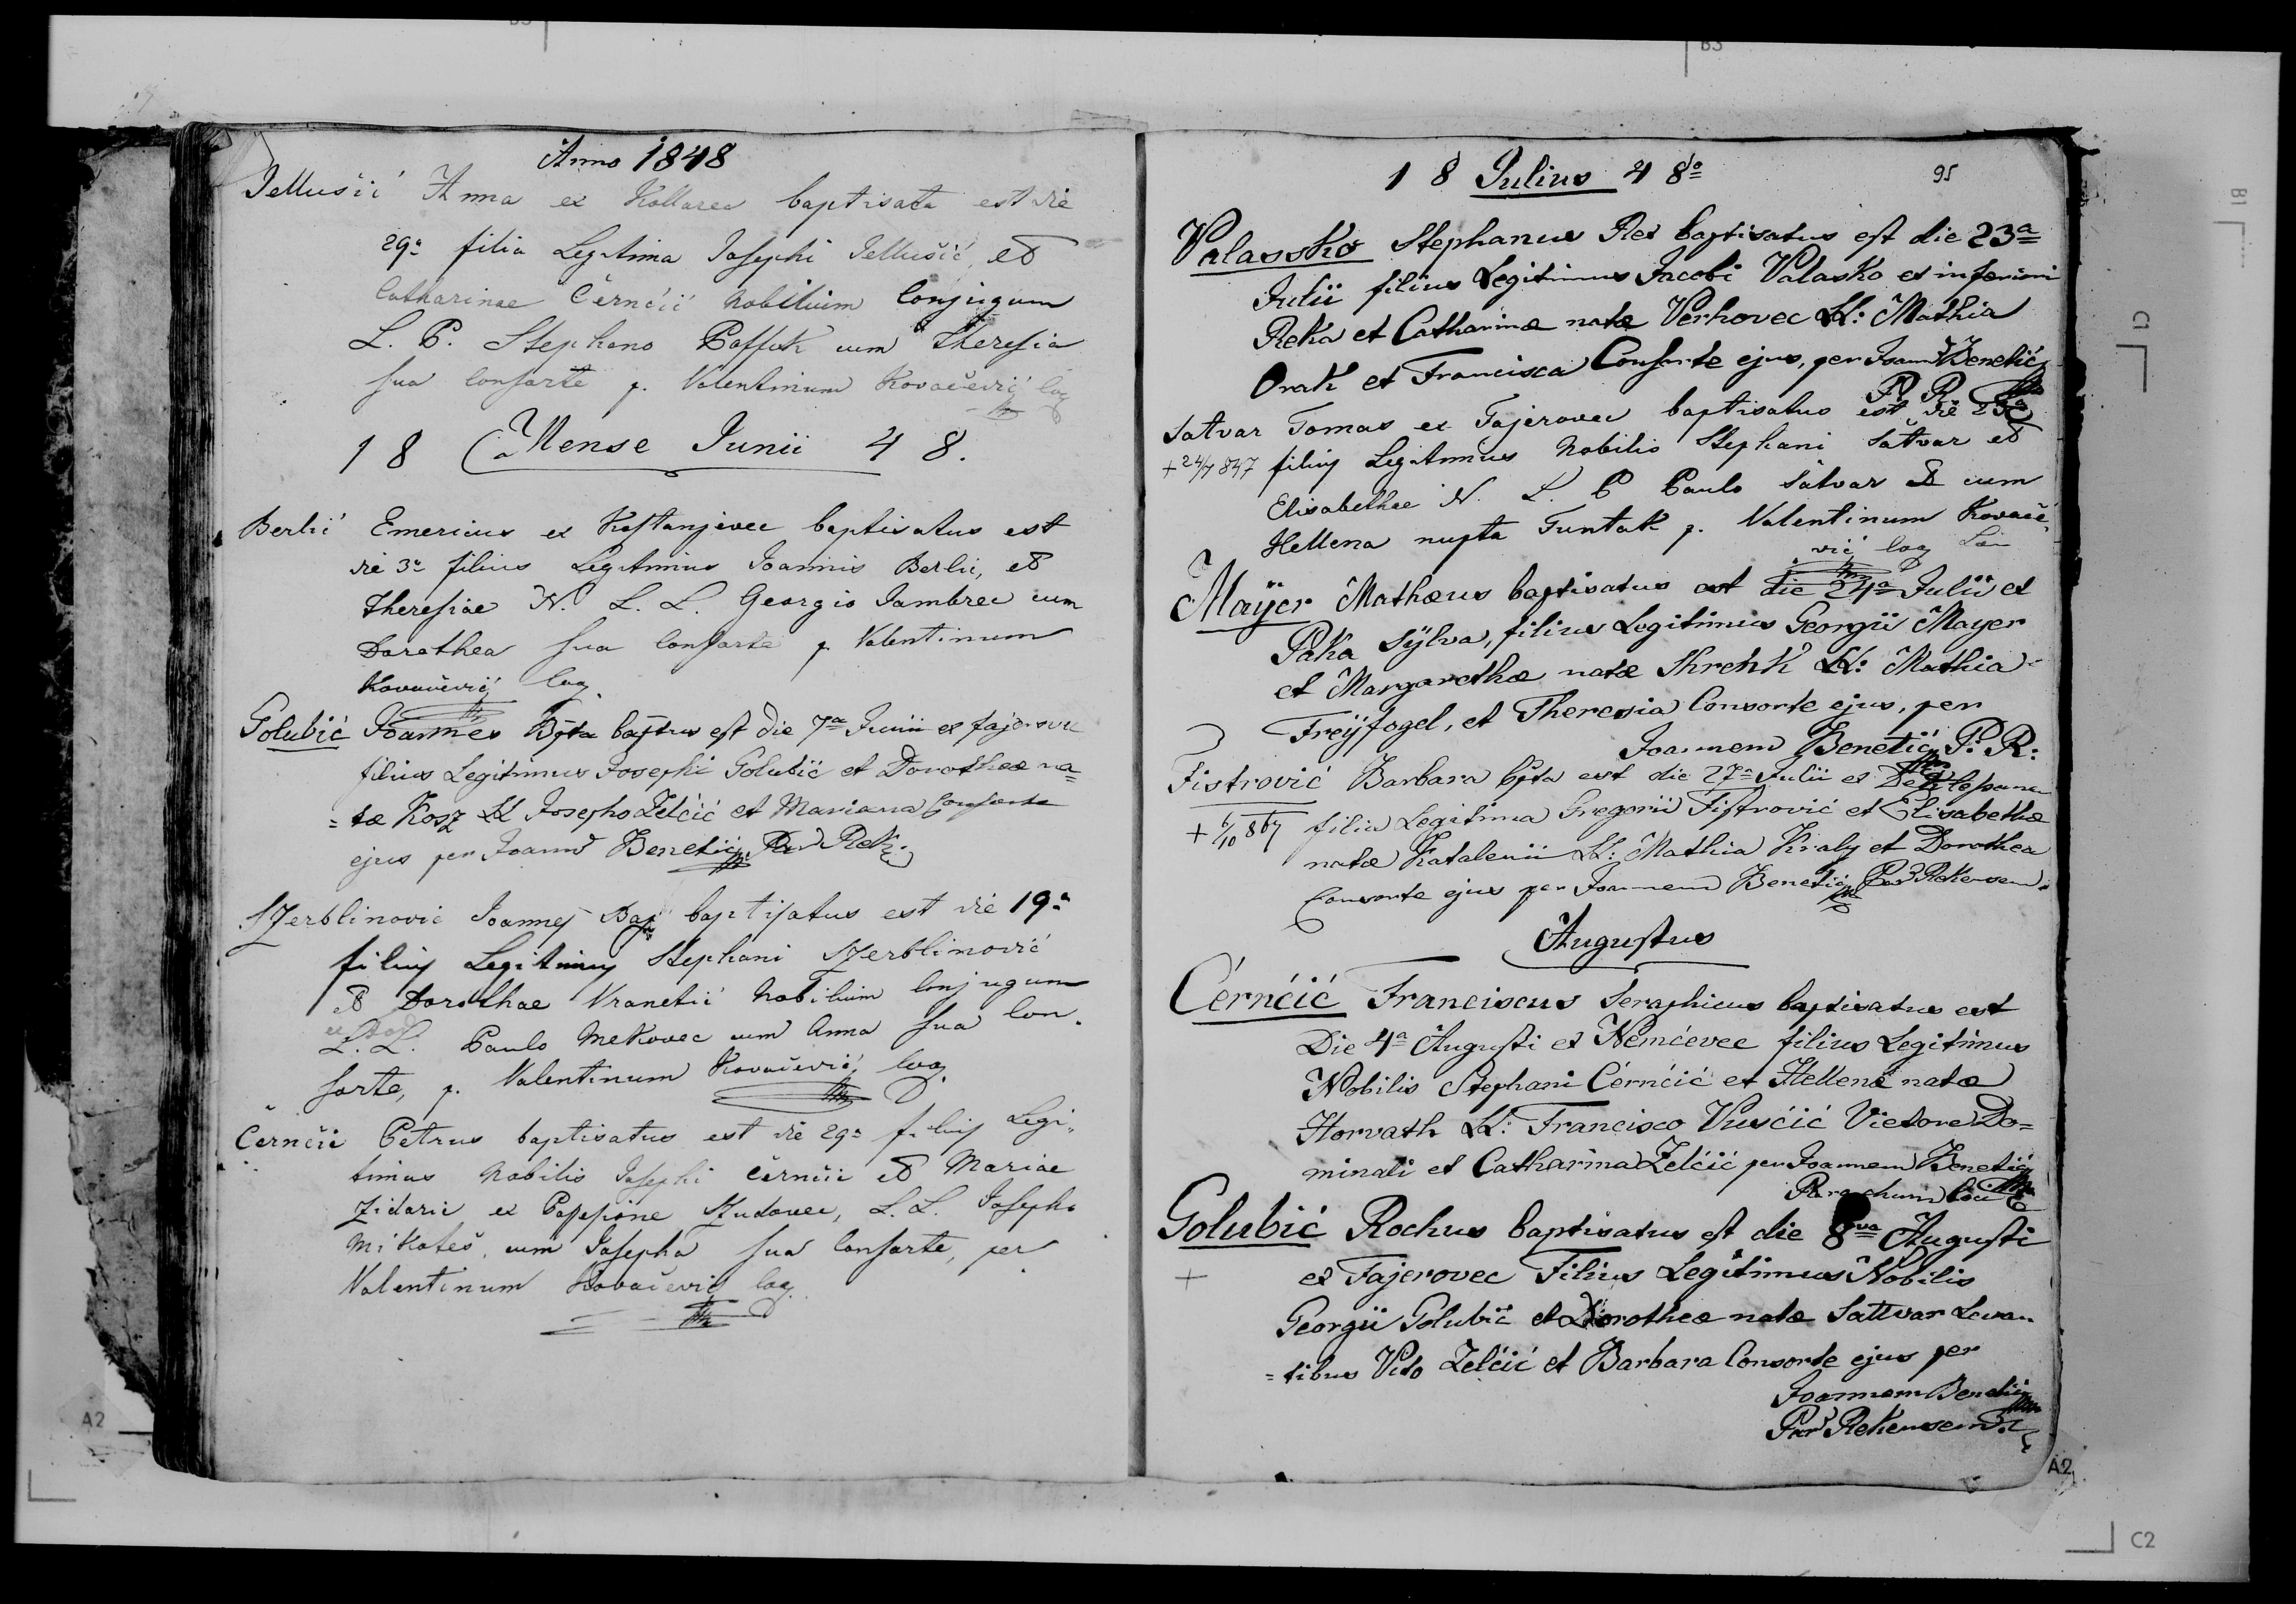 Anno 1848
Jellusić Anna ex Kollarec baptisata est die
29a filia Legitima Josephi Jellušić, et
Catharinae Černčić Nobilium Conjugum
L. P. Stephano Paffuk cum Theresia
sua Consorte p. Valentinum Kovačević
18 Mense Junii 48.
Berlić Emericus ex Kostanjevec baptisatus est
die 3a filius Legitimus Joannis Berlić, et
Theresiae N. L. L. Georgio Jambrec cum
Dorothea sua Consorte p. Valentinum
Kovačević
Golubić Joannes Bpta baptus est die 7a Junii ex Fajerovec
filius Legitimus Josephi Golubić et Dorotheæ na=
=tæ Kosz LL Josepho Zelčić et Mariana Consorte
ejus per Joannem Benetić Par Rek.
Szerblinović Joannes Bap baptisatus est die 19a
filius Legitimus Stephani Szerblinović
et Dorothae Vranetić Nobilium Conjugum
L. L. Paulo Mekovec cum Anna sua Con-
sorte, p. Valentinum Kovačević
Černčić Petrus baptisatus est die 29a filius Legi-
timus Nobilis Josephi Černčić et Mariae
Zidarić ex Possessione Szudovec, L. L. Josepho
Mikoteš, cum Josepha sua Consorte, per
Valentinum Kovačević
18 Julius 48o
95
Valassko Stephanus Rex baptisatus est die 23a
Julii filius Legitimus Jacobi Valasko ex inferiori
Reka et Catharinæ natæ Verhovec LL: Mathia
Orak et Francisca Consorte ejus, per Joann Benetić
P. R.
Satvar Tomas ex Fajerovec baptisatus est die 23a
+ 24/7 847 filius Legitimus Nobilis Stephani Satvar et
Elisabethae N. L P Paulo Satvar et cum
Hellena nupta Funtak p. Valentinum Kovače-
vić
Maÿer Mathæus baptisatus est die 24a Julii ex
Paka Sÿlva, filius Legitimus Georgii Mayer
et Margarethæ natæ Shrehk LL: Mathia
Freÿfogel, et Theresia Consorte ejus, per
Joannem Benetić P. R:
Fistrović Barbara bpta est die 27a Julii ex
+ 6/10 867 filia Legitima Gregorii Fistrović et Elisabethæ
natæ Katalenii LL: Mathia Kraly et Dorothea
Consorte ejus per Joannem Benetić Par Rekensem.
Augustus
Cérnćić Franciscus Seraphicus baptisatus est
Die 4a Augusti ex Nemćevec filius Legitimus
Nobilis Stephani Cérnćić et Hellenæ natæ
Horvath LL: Francisco Vusćić Vietore Do=
minali et Catharina Zelćić per Joannem Benetić
Parochum
Golubić Rochus baptisatus est die 8va Augusti
+ ex Fajerovec Filius Legitimus Nobilis
Georgii Golubić et Dorotheæ natæ Sattvar Levan
=tibus Vito Zelćić et Barbara Consorte ejus per
Joannem Benetić
Par Rekensem
A2
A2
B1
C1
C2
B3
B3